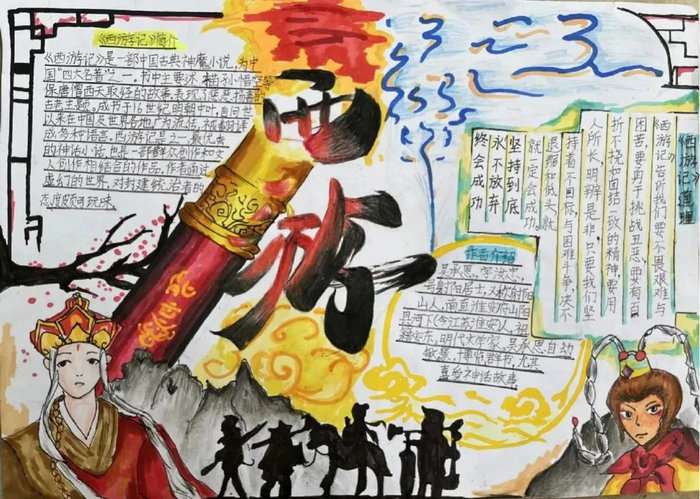 《西游记》简介
《西游记》是一部中国古典神魔小说，为中
国"四大名著"之一。书中主要
保唐僧西天取经的故事，表现了惩恶扬善的
古老主题。成书于16世纪明朝中叶，自问世
以来在中国及世界各地广为流传，被翻译
成多种语言。西游记是之一最优秀
的神话小说，也是一部群众创作和文
人创作相结合的作品，作者通过
虚幻的世界，对封建统治者的
态度颇可玩味。
西
游
作者介绍
吴承恩，字汝忠，
号射阳居士，又称射阳
山人，南直隶淮安府山阳
县河下（今江苏淮安）人，祖
明代文学家，吴承恩自幼
敏慧，博览群书，尤喜
神话故事
西游记道理
《西游记》告诉我们要不畏艰难与
困苦，要勇于挑战丑恶，要有百
折不挠，如团结一致的精神，要用
人所长，明辨是非，只要我们坚
持着一个目标，与困难斗争，决不
退缩和低头，就
一定会成功。
坚持到底
永不放弃
终会成功